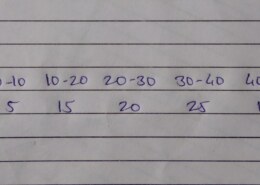 -10 10-20 20-30 30-40 40
5 15 20 25